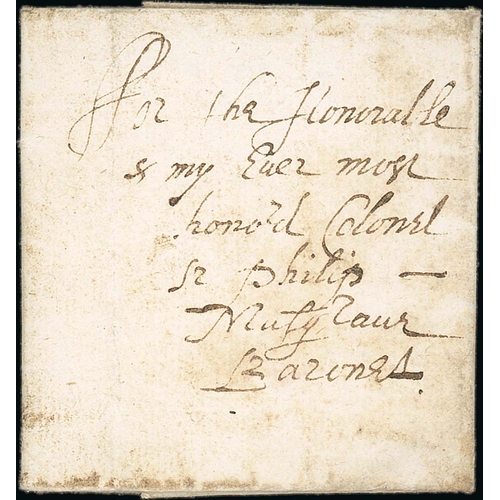 ffor the Honorable
& my Ever most
hono:rd Colonel
Sr Philip —
Musgraue
Baronet.